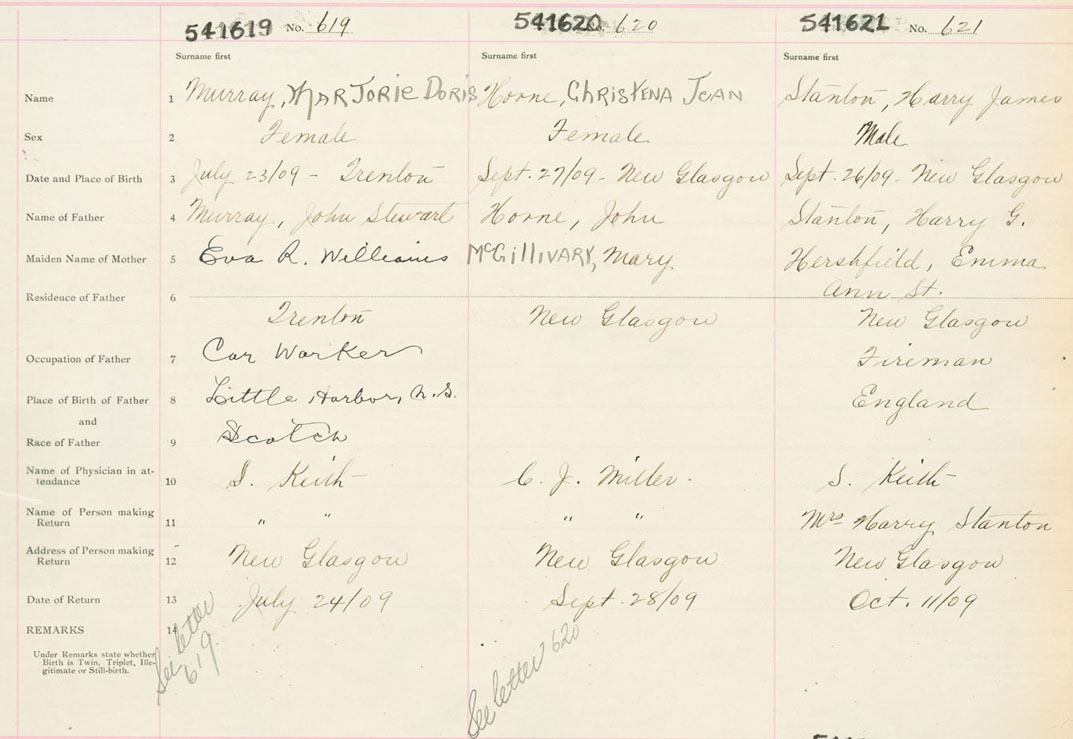 541619 No. 619 541620 No. 620 541621 No. 621
Surname first Surname first Surname first
Name 1 Murray, Marjorie Doris Horne, Christena Jean Stanton, Harry James
Sex 2 Female Female Male
Date and Place of Birth 3 July 23/09 - Trenton Sept. 27/09 - New Glasgow Sept. 26/09 - New Glasgow
Name of Father 4 Murray, John Stewart Horne, John Stanton, Harry G.
Maiden Name of Mother 5 Eva R. Williams McGillivary, Mary Hershfield, Emma
Residence of Father 6 Ann St.
Trenton New Glasgow New Glasgow
Occupation of Father 7 Car Worker Fireman
Place of Birth of Father 8 Little Harbor, N.S. England
and
Race of Father 9 Scotch
Name of Physician in at-
tendance 10 S. Keith C. J. Miller. S. Keith
Name of Person making
Return 11 " " " " Mrs Harry Stanton
Address of Person making
Return 12 New Glasgow New Glasgow New Glasgow
Date of Return 13 July 24/09 Sept. 28/09 Oct. 11/09
REMARKS 14
Under Remarks state whether
Birth is Twin, Triplet, Ille-
gitimate or Still-birth.
See letter
619
See letter 620